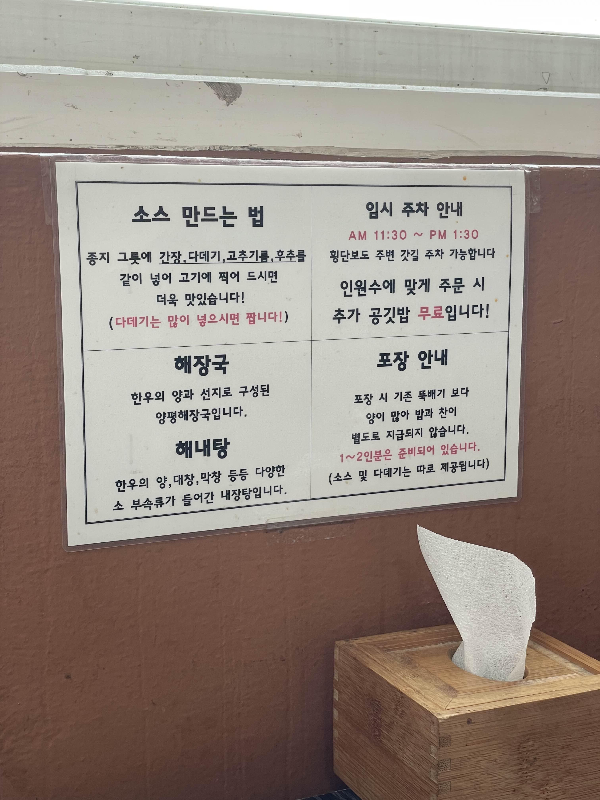 소스 만드는 법
종지 그릇에 간장,다데기,고추기름,후추를
같이 넣어 고기에 찍어 드시면
더욱 맛있습니다!
(다데기는 많이 넣으시면 짭니다!)
임시 주차 안내
AM 11:30 ~ PM 1:30
횡단보도 주변 갓길 주차 가능합니다
인원수에 맞게 주문 시
추가 공깃밥 무료입니다!
해장국
한우의 양과 선지로 구성된
양평해장국입니다.
해내탕
한우의 양,대창,막창 등등 다양한
소 부속류가 들어간 내장탕입니다.
포장 안내
포장 시 기존 뚝배기 보다
양이 많아 밥과 찬이
별도로 지급되지 않습니다.
1~2인분은 준비되어 있습니다.
(소스 및 다데기는 따로 제공됩니다)